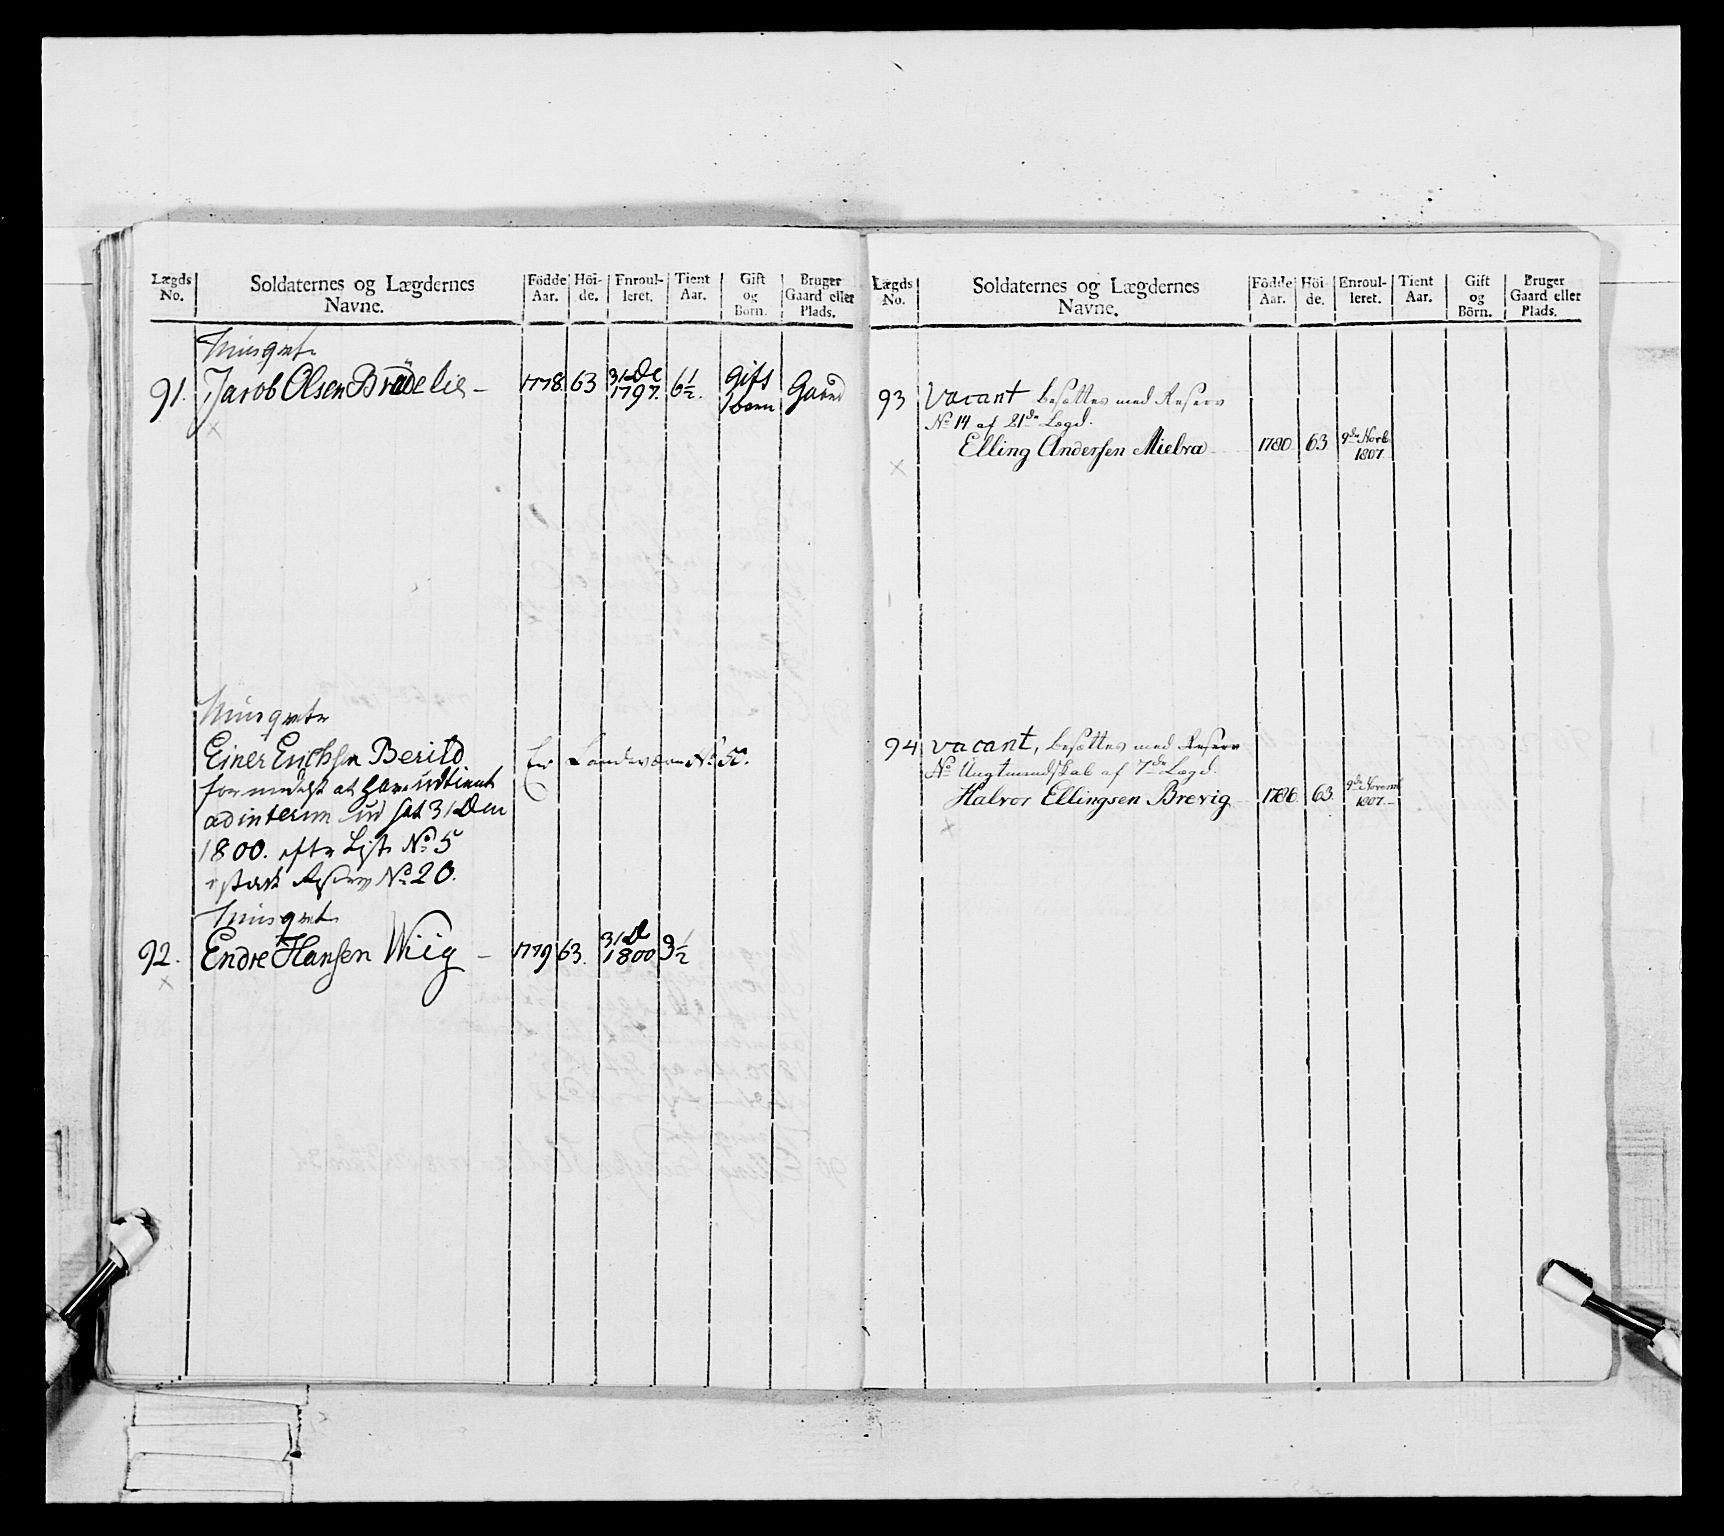 Lægds No. Soldaternes og Lægdernes Navne. Födde Aar. Höi-de. Enroul-leret. Tient Aar. Gift og Börn. Bruger Gaard eller Plads.
Musqvet:
91. Jacob Olsen Brødelie - 1778 63 31 De 1797. 6½. Gift 1 barn Gaard
Musqvetr
Einer Erichsen Berild Er Landeværn No 50.
formedelst at have udtient
ad interim ud sat 31 Den
1800. efter List No 5
Reserv No 20.
Musqvet:
92. Endre Hansen Wiig - 1779 63. 31 D 1800 3½
Lægds No. Soldaternes og Lægdernes Navne. Födde Aar. Höi-de. Enroul-leret. Tient Aar. Gift og Börn. Bruger Gaard eller Plads.
93 Vacant besættes med Reserv
No 14 af 21de Lægd.
Elling Andersen Mielva 1780 63 9de Novb 1807.
94 vacant, besættes med Reserv
No Ungtmandskab af 7de Lægd.
Halvor Ellingsen Brevig 1786 63. 9de Novemb 1807.